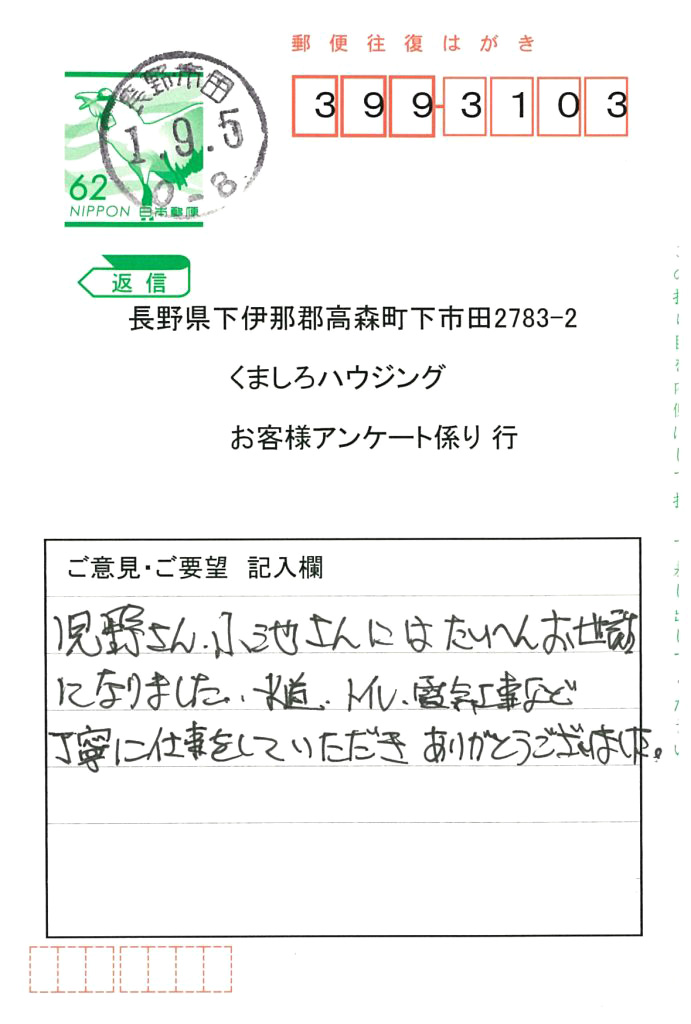 郵便往復はがき
399-3103
長野市田
1.9.5
0-8
62
NIPPON 日本郵便
返信
長野県下伊那郡高森町下市田2783-2
くましろハウジング
お客様アンケート係り 行
ご意見・ご要望 記入欄
児野さん.小池さんにはたいへんお世話
になりました.水道.トイレ.電気工事など
丁寧に仕事をしていただきありがとうございました。